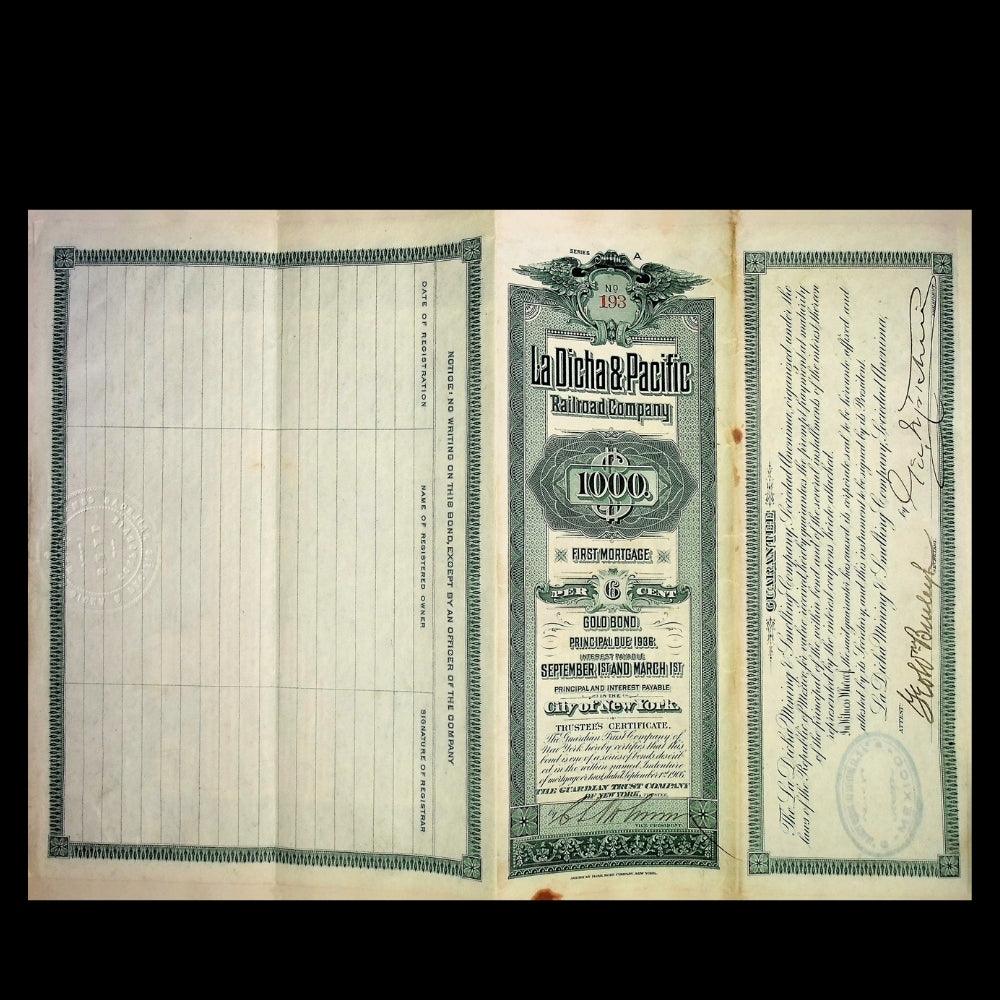 DATE OF REGISTRATION
NAME OF REGISTERED OWNER
SIGNATURE OF REGISTRAR
NOTICE: NO WRITING ON THIS BOND, EXCEPT BY AN OFFICER OF THE COMPANY
SERIES A
No
193
La Dicha & Pacific
Railroad Company
$1000.
FIRST MORTGAGE
PER 6 CENT
GOLD BOND.
PRINCIPAL DUE 1936.
INTEREST PAYABLE
SEPTEMBER 1ST AND MARCH 1ST
PRINCIPAL AND INTEREST PAYABLE
IN THE
City of New York.
TRUSTEE'S CERTIFICATE.
The Guardian Trust Company of
New York hereby certifies that this
bond is one of a series of bonds describ-
ed in the within named Indenture
of mortgage or trust, dated September 1st 1906.
THE GUARDIAN TRUST COMPANY
OF NEW YORK, TRUSTEE.
VICE PRESIDENT.
AMERICAN BANK NOTE COMPANY, NEW YORK.
GUARANTEE
The La Dicha Mining & Smelting Company, Sociedad Anonima, organized under the
laws of the Republic of Mexico, for value received, hereby guarantees the prompt payment at maturity
of the principal of the within bond and of the several installments of the interest thereon
represented by the interest coupons hereto attached.
In Witness Whereof, the said guarantor has caused its corporate seal to be hereunto affixed and
attested by its Secretary, and this instrument to be signed by its President
La Dicha Mining & Smelting Company, Sociedad Anonima,
By
PRESIDENT.
ATTEST
SECRETARY.